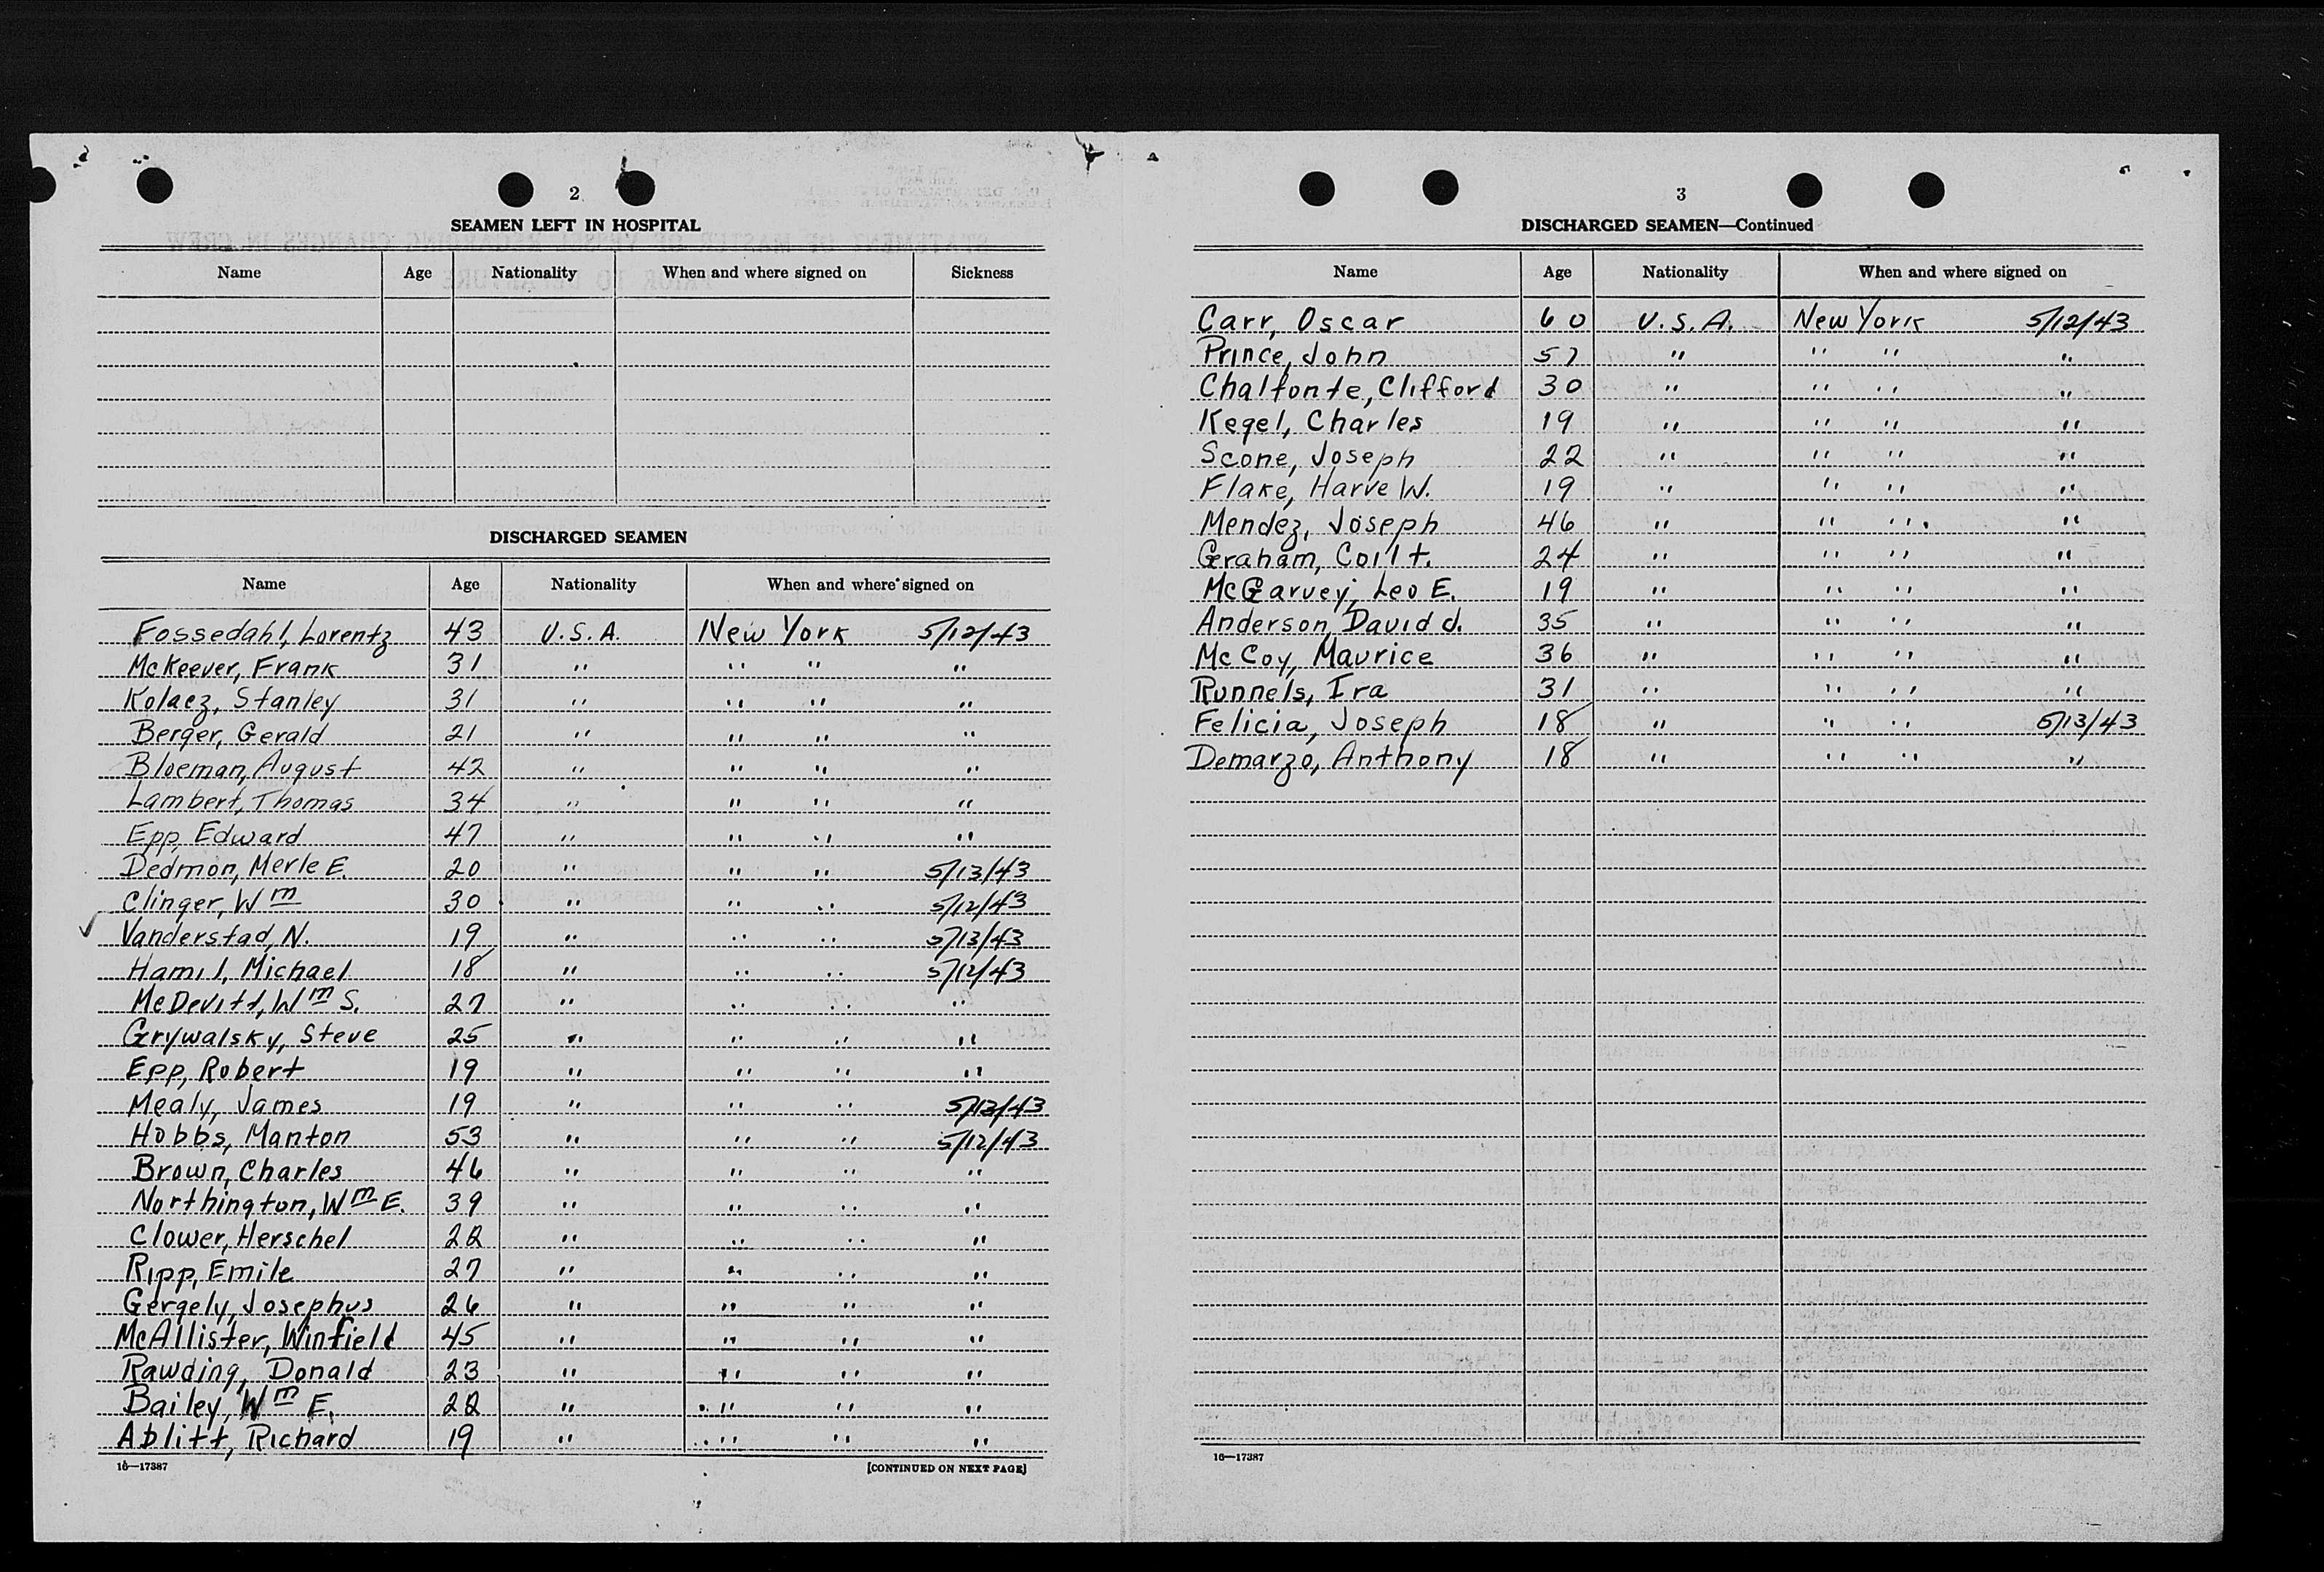 2
SEAMEN LEFT IN HOSPITAL
Name Age Nationality When and where signed on Sickness
DISCHARGED SEAMEN
Name Age Nationality When and where signed on
Fossedahl, Lorentz 43 U.S.A. New York 5/12/43
McKeever, Frank 31 " " " "
Kolacz, Stanley 31 " " " "
Berger, Gerald 21 " " " "
Bloeman, August 42 " " " "
Lambert, Thomas 34 " " " "
Epp, Edward 47 " " " "
Dedmon, Merle E. 20 " " " 5/13/43
Clinger, Wm 30 " " " 5/12/43
✓ Vanderstad, N. 19 " " " 5/13/43
Hamil, Michael 18 " " " 5/12/43
McDevitt, Wm S. 27 " " " "
Grywalsky, Steve 25 " " " "
Epp, Robert 19 " " " "
Mealy, James 19 " " " 5/13/43
Hobbs, Manton 53 " " " 5/12/43
Brown, Charles 46 " " " "
Northington, Wm E. 39 " " " "
Clower, Herschel 22 " " " "
Ripp, Emile 27 " " " "
Gergely, Josephus 26 " " " "
McAllister, Winfield 45 " " " "
Rawding, Donald 23 " " " "
Bailey, Wm E. 22 " " " "
Ablitt, Richard 19 " " " "
16—17387 [CONTINUED ON NEXT PAGE]
3
DISCHARGED SEAMEN—Continued
Name Age Nationality When and where signed on
Carr, Oscar 60 U.S.A. New York 5/12/43
Prince, John 57 " " " "
Chalfonte, Clifford 30 " " " "
Kegel, Charles 19 " " " "
Scone, Joseph 22 " " " "
Flake, Harve W. 19 " " " "
Mendez, Joseph 46 " " " "
Graham, Coil t. 24 " " " "
McGarvey, Leo E. 19 " " " "
Anderson, David J. 35 " " " "
McCoy, Maurice 36 " " " "
Runnels, Ira 31 " " " "
Felicia, Joseph 18 " " " 5/13/43
Demarzo, Anthony 18 " " " "
16—17387